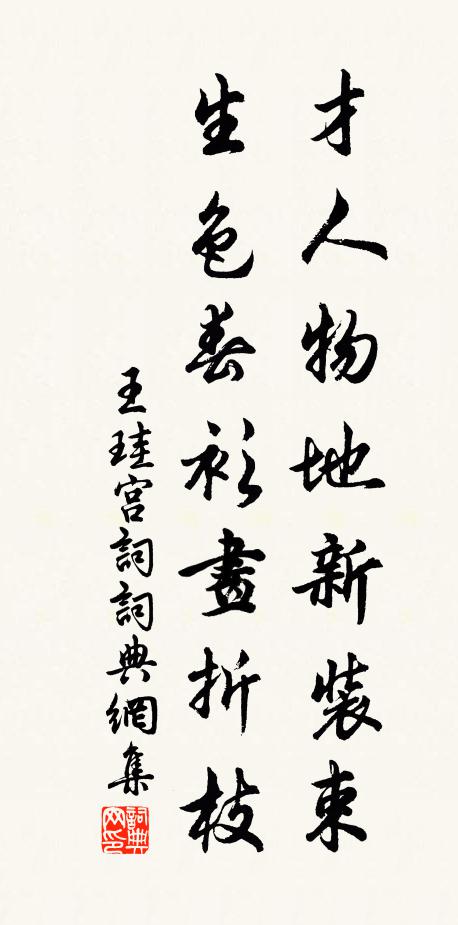 才人物地新裝束
生色春衫畫折枝
王珪宮詞詞典網集
詞典網印